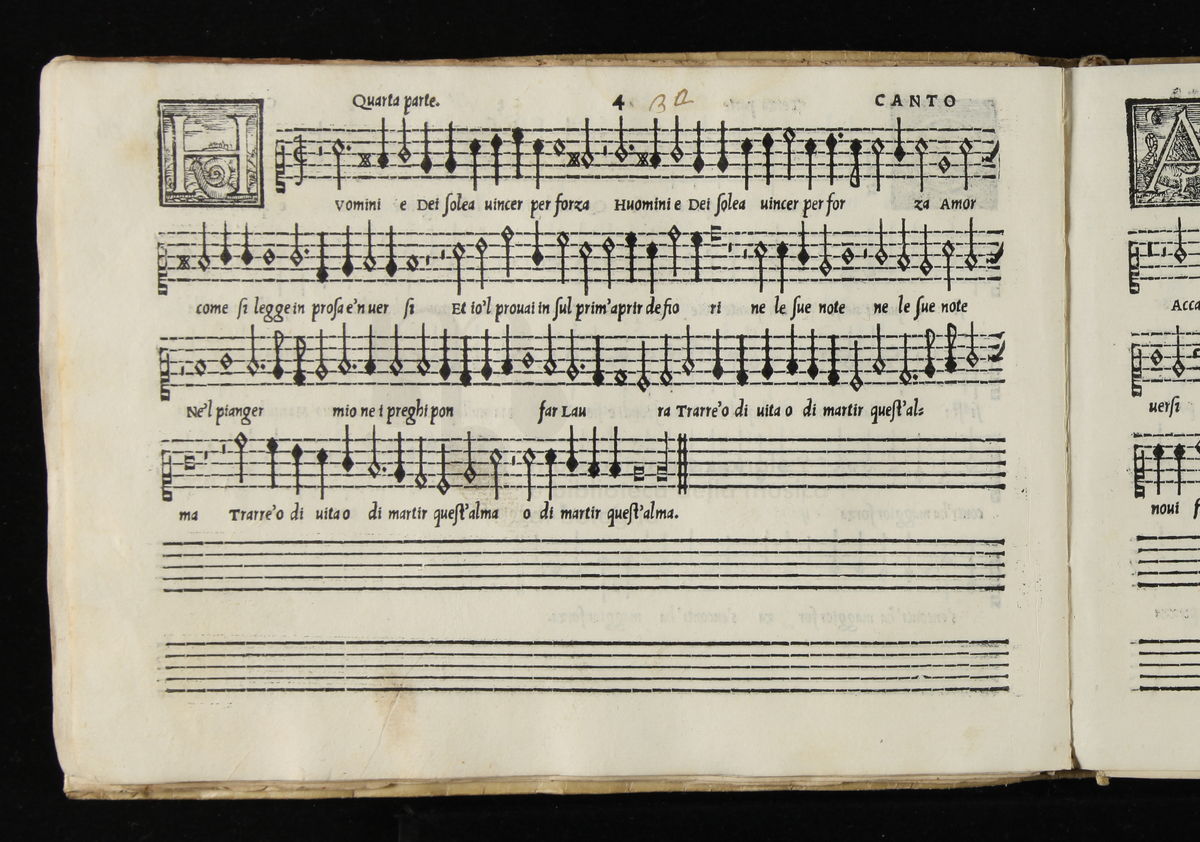 Quarta parte. 4 CANTO
HVomini e Dei solea uincer per forza Huomini e Dei solea uincer per for za Amor
come si legge in prosa e'n uer si Et io'l prouai in sul prim'aprir de fio ri ne le sue note ne le sue note
Ne'l pianger mio ne i preghi pon far Lau ra Trarre'o di uita o di martir quest'al=
ma Trarre'o di uita o di martir quest'alma o di martir quest'alma.
A
Acca
uersi
noui f